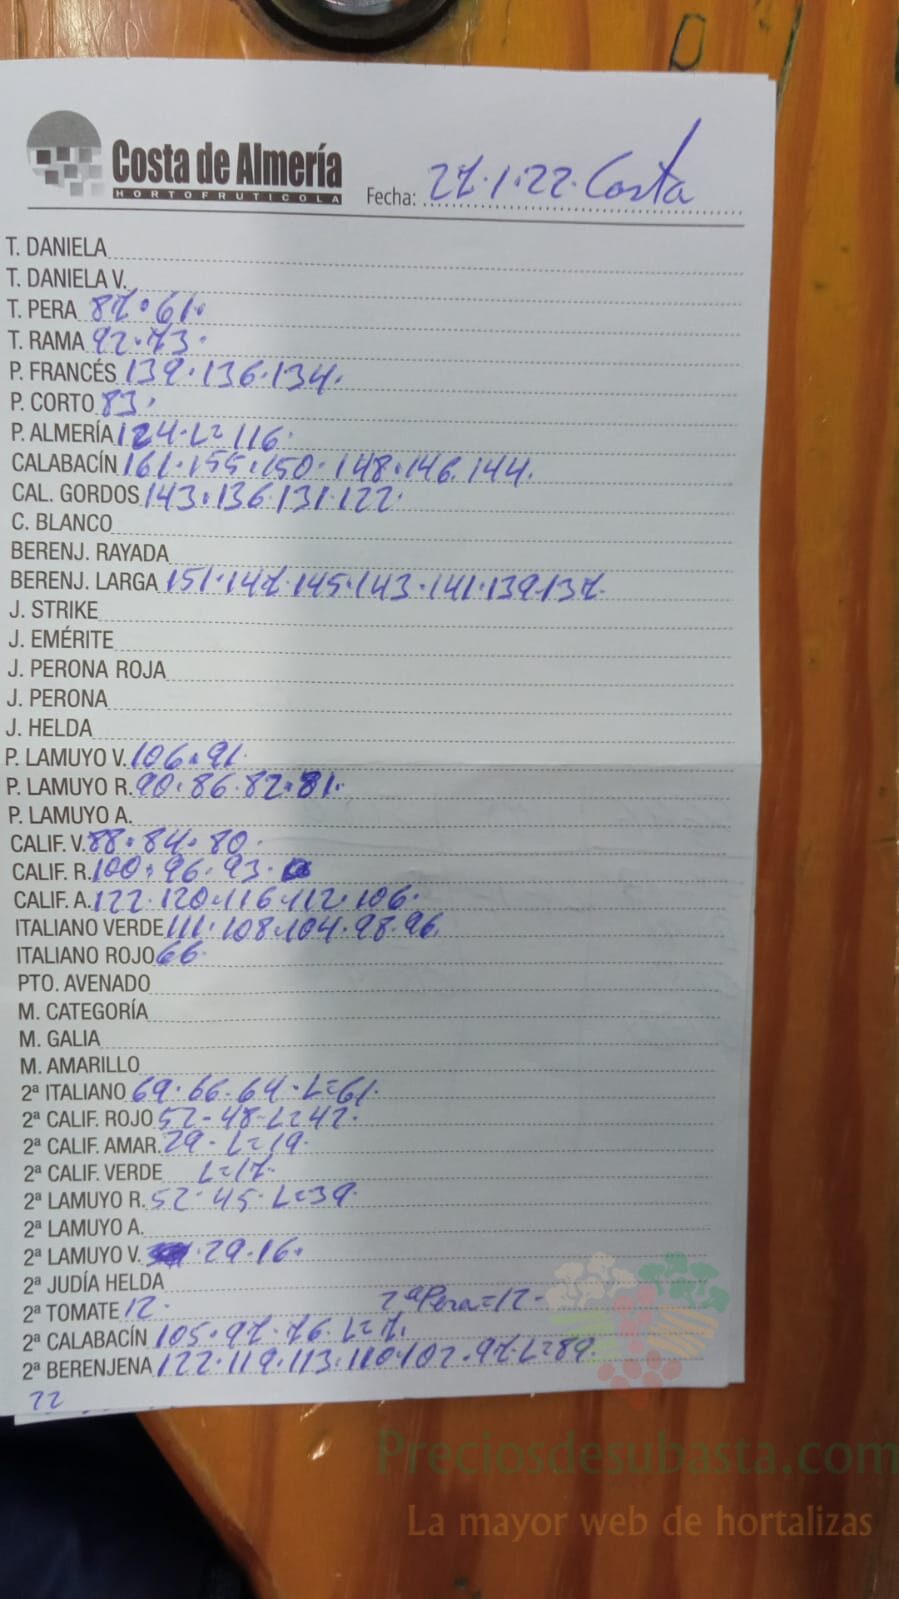 Costa de Almería
HORTOFRUTICOLA
Fecha: 27.1.22. Costa
T. DANIELA
T. DANIELA V.
T. PERA 87. 61.
T. RAMA 92. 73.
P. FRANCÉS 139. 136. 134.
P. CORTO 83.
P. ALMERÍA 124. L= 116.
CALABACÍN 161. 155. 150. 148. 146. 144.
CAL. GORDOS 143. 136. 131. 122.
C. BLANCO
BERENJ. RAYADA
BERENJ. LARGA 151. 147. 145. 143. 141. 139. 137.
J. STRIKE
J. EMÉRITE
J. PERONA ROJA
J. PERONA
J. HELDA
P. LAMUYO V. 106. 91.
P. LAMUYO R. 90. 86. 82. 81.
P. LAMUYO A.
CALIF. V. 88. 84. 80.
CALIF. R. 100. 96. 93.
CALIF. A. 122. 120. 116. 112. 106.
ITALIANO VERDE 111. 108. 104. 98. 96.
ITALIANO ROJO 66.
PTO. AVENADO
M. CATEGORÍA
M. GALIA
M. AMARILLO
2ª ITALIANO 69. 66. 64. L=61.
2ª CALIF. ROJO 52- 48- L=42.
2ª CALIF. AMAR. 29. L=19.
2ª CALIF. VERDE L=17.
2ª LAMUYO R. 52. 45. L=39.
2ª LAMUYO A.
2ª LAMUYO V. . 29. 16.
2ª JUDÍA HELDA
2ª TOMATE 12. 2ª Pera=12-
2ª CALABACÍN 105. 97. 76. L=71.
2ª BERENJENA 122. 119. 113. 110. 102. 97. L=89.
22
Preciosdesubasta.com
La mayor web de hortalizas